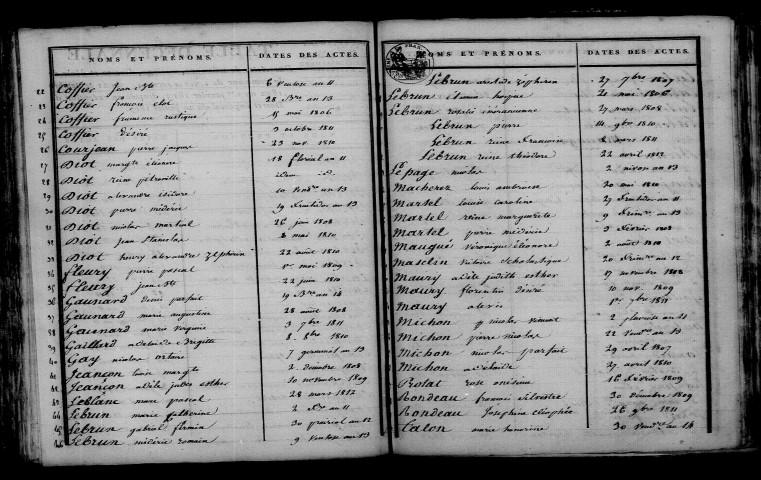 NOMS ET PRÉNOMS. DATES DES ACTES.
22 Coffier Jean Bte 6 Ventose an 11
23 Coffier françois éloi 28 Bre an 13
24 Coffier rustique 15 mai 1806
25 Coffier Désiré 3 octobre 1811
26 Courjean pierre jacques 23 nov. 1810
27 Diot margte étienne 18 floréal an 11
28 Diot reine pétronille idem id
29 Diot alexandre isidore 10 Vendre an 13
30 Diot pierre médéric 19 fructidor an 13
31 Diot nicolas martial 26 juin 1808
32 Diot jean Stanislas 8 mai 1810
33 Diot henry alexandre Zéphirin 22 août 1810
34 fleury pierre pascal 1er mai 1809
35 fleury jean Bte 22 juin 1810
36 Gaunard denis parfait 19 Bre an 14
37 Gaunard marie augustine 28 août 1808
38 Gaunard marie virginie 3 7bre 1811
39 Gaillard adelaide Brigitte 8 8bre 1810
40 Gay nicolas 7 germinal an 13
41 Jeançon louise margte 2 décembre 1808
42 Jeançon adèle judes esther 10 novembre 1809
43 Leblanc marie pascal 28 mars 1812
44 Lebrun marie catherine 2 an 11
45 Lebrun gabriel firmin 30 prairial an 12
46 Lebrun médéric romain 9 Ventose an 13
NOMS ET PRÉNOMS. DATES DES ACTES.
Lebrun aristide zéphirin 27 7bre 1807
Lebrun étienne 21 mai 1806
Lebrun rosalie 27 mars 1808
Lebrun pierre 14 9bre 1810
Lebrun reine françoise 8 mars 1811
Lebrun reine théodore 22 avril 1812
Lepage nicolas 2 nivose an 13
Macherez louis ambroise 20 mai 1810
Martel louise caroline 29 fructidor an 11
Martel reine marguerite 9 frimre an 13
Martel pierre médéric 9 février 1808
Maugué véronique éléonore 2 août 1810
Masclin victoire Scholastique 20 frimre an 12
Maury adèle judith esther 17 novembre 1808
Maury florentin désiré 10 nov. 1809
Maury alexis 1er 7bre 1811
Michon nicolas 2 pluviose an 11
Michon pierre nicolas 22 Vendre an 13
Michon nicolas parfait 29 avril 1807
Michon adelaide 27 avril 1810
Rolat rose onésime 16 février 1809
Rondeau françois silvestre 30 décembre 1809
Rondeau Josephine cléophée 26 9bre 1811
Talon marie honorine 30 Vendre an 14